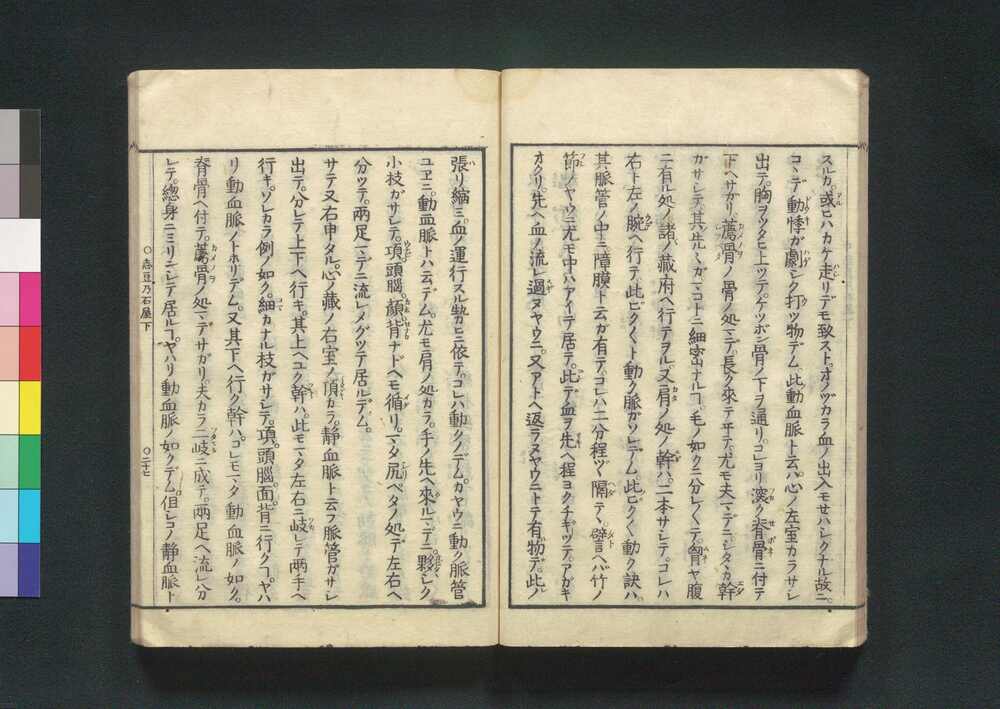 スルカ。或ヒハカケ走リデモ致スト。オノヅカラ血ノ出入モセハシクナル故ニ。
コヽデ動悸ガ劇シク打ツ物デム。此動血脈ト云ハ。心ノ左室カラサシ
出テ。胸ヲツタヒ上ツテ。ケツボン骨ノ下ヲ通リ。コレヨリ深ク脊骨ニ付テ
下ヘサガリ。蓐骨ノ骨ノ処マデ。長ク來テヰテ。尤モ夫マデニシタヽカ幹
ガサシテ。其先ハ。ガマコトニ細密ナルヿ。毛ノ如クニ分レ〳〵テ。胷ヤ腹
ニ有ル処ノ諸ノ藏府ヘ行テヲル。又肩ノ処ノ幹ハ。二本サシテ。コレハ
右ト左ノ腕ヘ行テ。此ビク〳〵ト動ク脈ガソレデム。此ビク〳〵動ク訣ハ。
其脈管ノ中ニ障膜ト云ガ有テ。コレハ二分程ヅヽ隔テヽ。譬ヘバ竹ノ
節ノヤウニ。尤モ中ハアイテ居テ。此デ血ヲ先ヘ程ヨクチギツテ。アガキ
オクリ。先ヘ血ノ流レ過ヌヤウニ。又アトヘ返ラヌヤウニトテ有物デ。此ノ
張リ縮ミ。血ノ運行スル勢ヒニ依テ。コレハ動クノデム。カヤウニ動ク脈管
ユヱニ。動血脈トハ云デム。尤モ肩ノ処カラ。手ノ先ヘ來ルマデニ。夥シク
小枝ガサシテ。項頭腦。顏背ナドヘモ循リ。マタ尻ベタノ処デ左右ヘ
分ツテ。兩足マデニ流レメグツテ居ルデム。
サテ又右申タル。心ノ藏ノ右室ノ頂カラ。靜血脈ト云フ脈管ガサシ
出テ。分レテ上下ヘ行キ。其上ヘユク幹ハ。此モマタ左右ニ岐レテ兩手ヘ
行キ。ソレカラ例ノ如ク。細カナル枝ガサシテ。項。頭腦面。背ニ行クヿ。ヤハ
リ動血脈ノトホリデム。又其下ヘ行ク幹ハ。コレモマタ動血脈ノ如ク。
脊骨ヘ付テ。蓐骨ノ処マデサガリ。夫カラ二岐ニ成テ。兩足ヘ流レ分
レテ。總身ニミリニシテ居ルヿ。ヤハリ動血脈ノ如クデム。但シコノ靜血脈ト
○志豆乃石屋下
○二十七